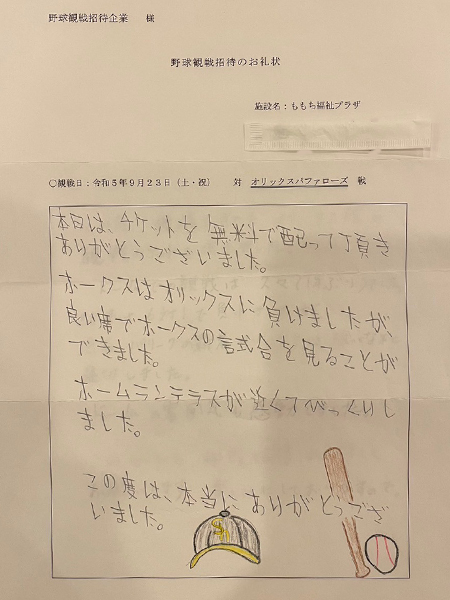 野球観戦招待企業　様
野球観戦招待のお礼状
施設名：ももち福祉プラザ
○観戦日：令和5年9月23日（土・祝）　対　オリックスバファローズ　戦
本日は、チケットを無料で配って頂き
ありがとうございました。
ホークスはオリックスに負けましたが、
良い席でホークスの試合を見ることが
できました。
ホームランテラスが近くてびっくりし
ました。
この度は、本当にありがとうござ
いました。
S